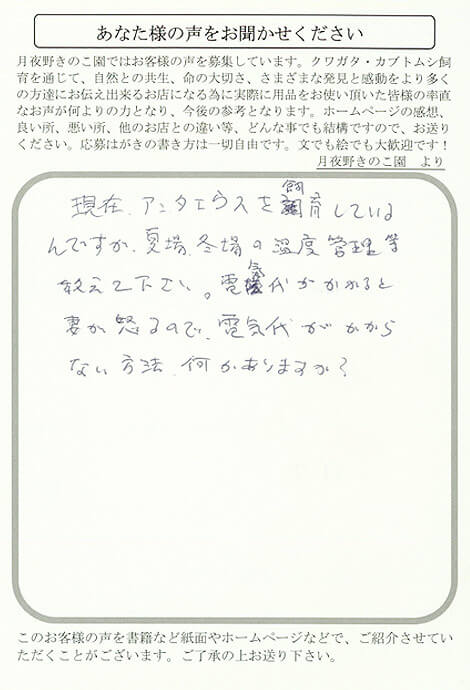 あなた様の声をお聞かせください
月夜野きのこ園ではお客様の声を募集しています。クワガタ・カブトムシ飼
育を通じて、自然との共生、命の大切さ、さまざまな発見と感動をより多く
の方達にお伝え出来るお店になる為に実際に用品をお使い頂いた皆様の率直
なお声が何よりの力となり、今後の参考となります。ホームページの感想、
良い所、悪い所、他のお店との違い等、どんな事でも結構ですので、お送り
ください。応募はがきの書き方は一切自由です。文でも絵でも大歓迎です！
月夜野きのこ園　より
現在、アンタエウスを飼育している
んですが、夏場、冬場の温度管理等
教えて下さい。電気代がかかると
妻が怒るので、電気代がかから
ない方法、何かありますか？
このお客様の声を書籍など紙面やホームページなどで、ご紹介させてい
ただくことがございます。ご了承の上お送り下さい。